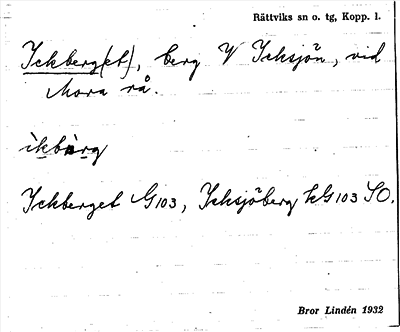 Rättviks sn o. tg, Kopp. l.
Yckberg(et), berg V Ycksjön, vid
Mora rå.
ikbärg
Yckberget G103, Ycksjöberg hG103 SO.
Bror Lindén 1932